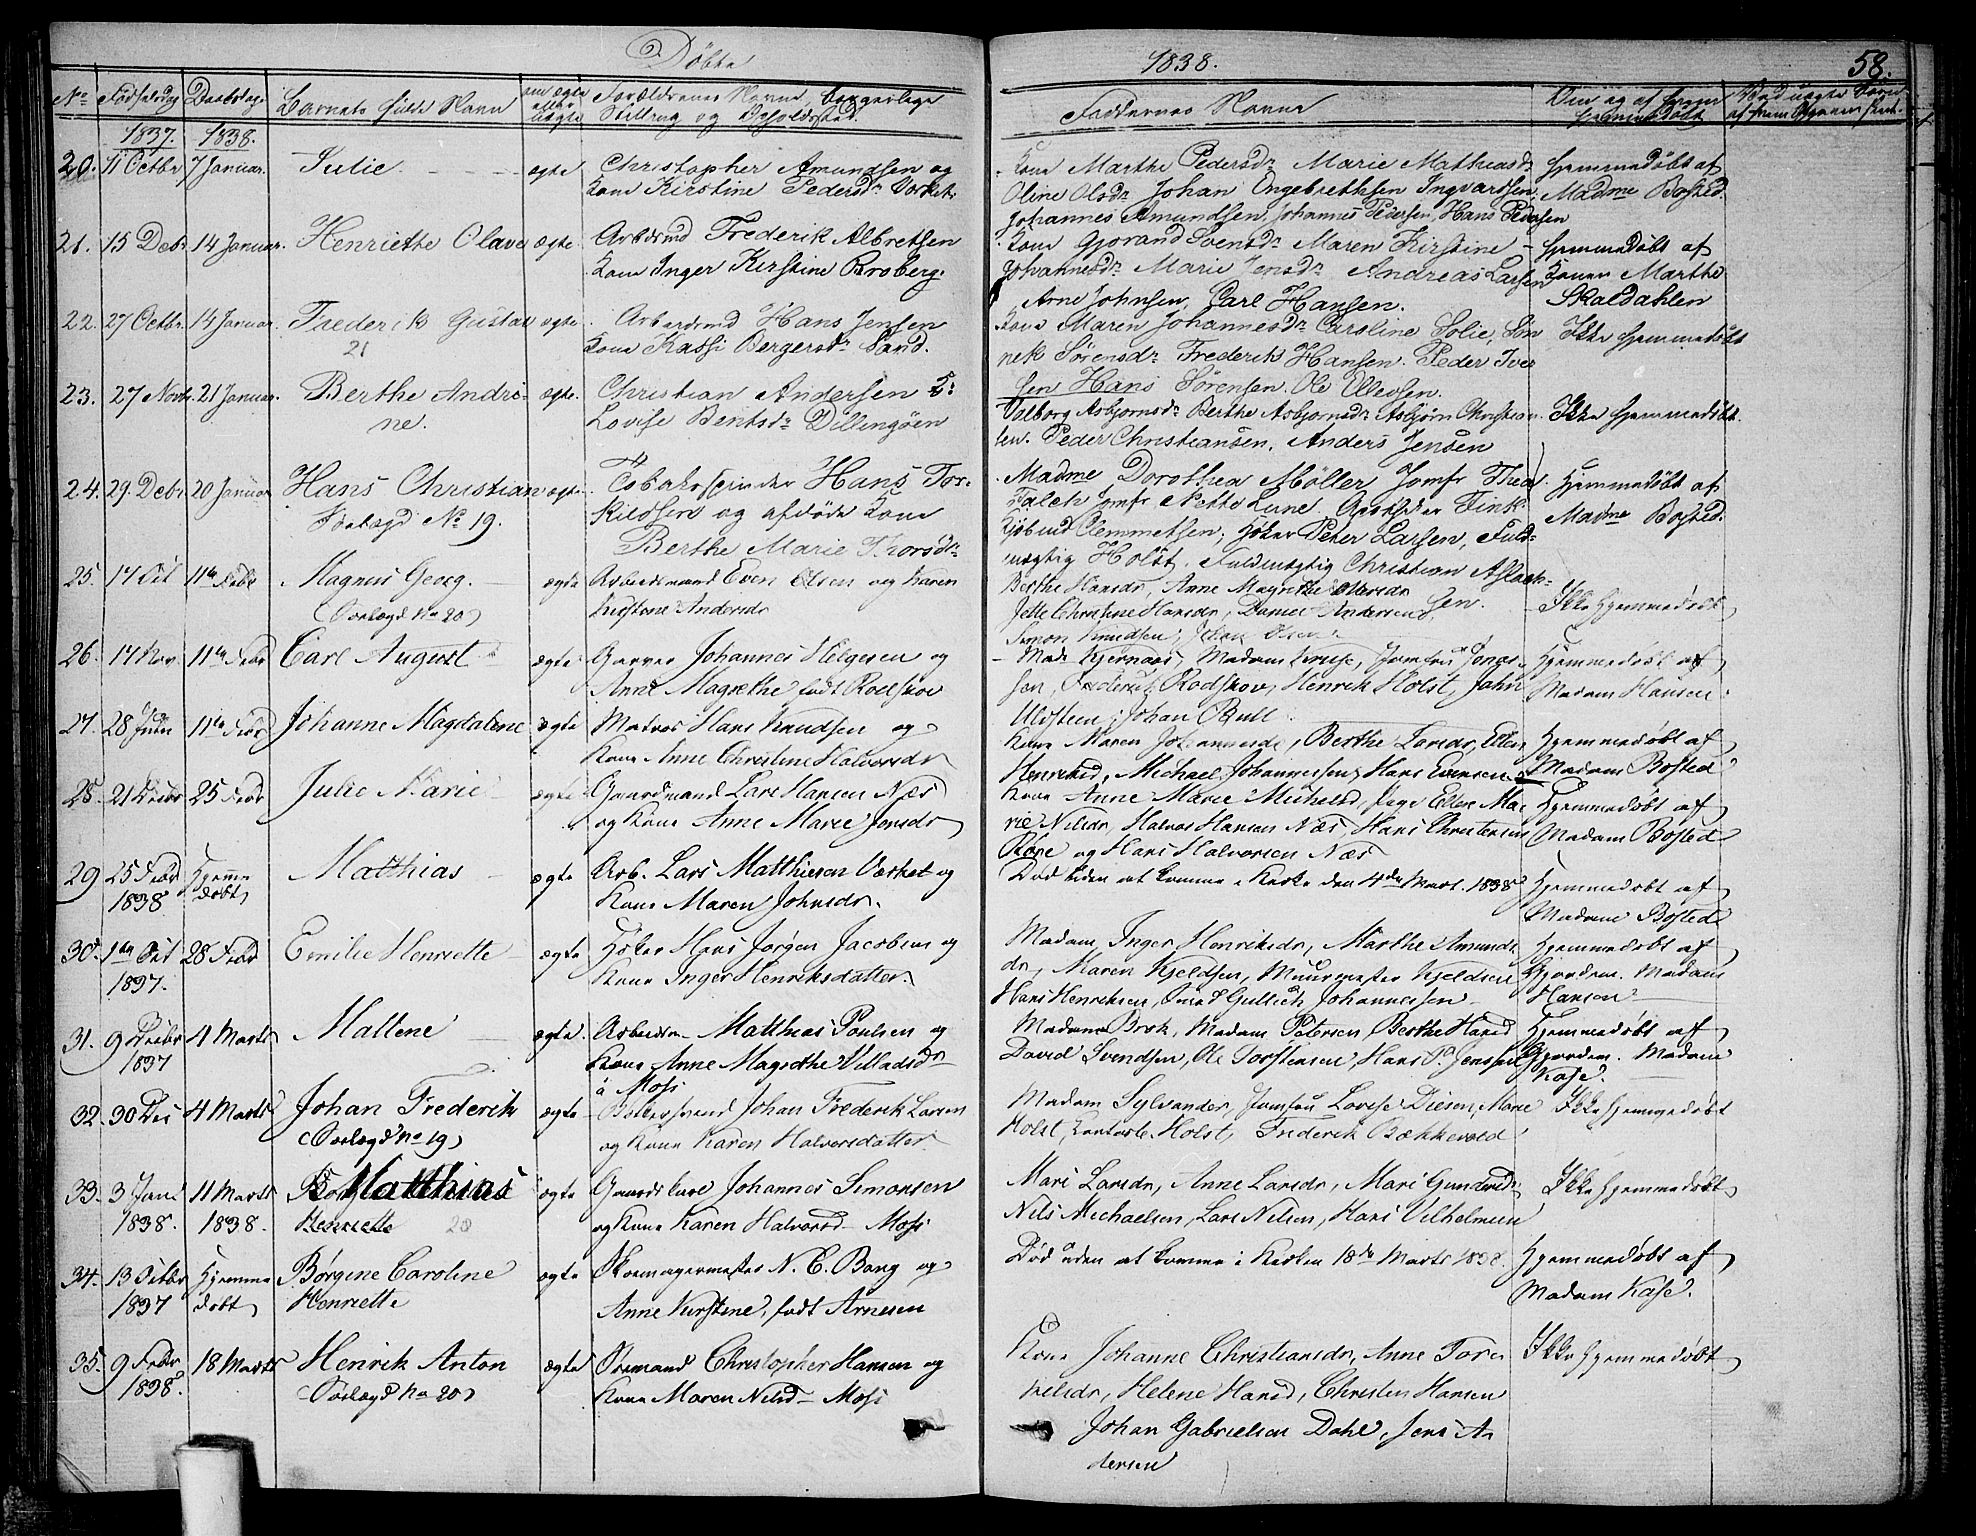 Döbte
1838.
58.
No Födselsdag Daabsdag Barnets fulde Navn om ægte eller uægte Forældrenes Navne, borgerlige Stilling og Opholdssted. Faddernes Navne
1837. 1838.
20. 11 Octbr 7 Januar. Julie. ægte Christopher Amundsen og
Kone Kirstine Pedersdr Værket.
Kone Marthe Pedersdr Marie Mathiasdr
Oline Olsdr Johan Engebrethsen Ingvardsen
Johannes Amundsen, Johannes Pedersen, Hans Pedersen
Hjemmedöbt af
Madme Bosted.
21. 15 Debr 14 Januar. Henriette Olava ægte. Arbdsmd Frederik Albretsen
Kone Inger Kirstine Broberg.
Kone Gjorand Svensdr Maren Kirstine
Johannesdr Marie Jensdr Andreas Larsen
Arne Johnsen, Carl Hansen.
Hjemmedöbt af
Konen Marthe
Skaldahlen
22. 27 Octbr. 14 Januar. Frederik Gustav ægte. Arbeidsmd Hans Jensen
21
Kone Kassi Bergersdr Sand.
Kone Maren Johannesdr Caroline Solie, Sön
nek Sörensdr Frederik Hansen. Peder Iver
sen Hans Sörensen. Ole Ellevsen.
Ikke hjemmedöbt
23. 27 Novbr 21 Januar. Berthe Andri-
ne.
ægte. Christian Andersen &
Lovise Bentsdr Dillingöen
Valborg Asbjornsdr Berthe Asbjornsdr Asbjörn Christian
sen. Peder Christiansen, Anders Jensen
Ikke hjemmedöbt.
24. 29. Debr 20 Januar Hans Christian ægte. Tobaksspinder Hans Tor-
Forlagd No 19.
kildsen og afdöde Kone
Berthe Marie Thorsdr
Madme Dorothea Möller Jomfr Thea
Falch Jomfr Nette Lune.
Clemmetsen, Höker Peter Larsen, Fuld-
mægtig Holst. Fuldmægtig Christian Aslak-
sen.
Hjemmedöbt af
Madme Bosted.
25. 17 Oct 11te Febr Magnus Georg. ægte Arbeidsmand Even Olsen og Karen
(Forlagd No 20)
Kirstine Andersdr
Berthe Hansdr, Anne Magrethe Olsersdr
Jelle Christine Hansdr, Daniel Andersen,
Simon Knudsen, Johan Olsen
Ikke hjemmedöbt
26. 17 Nov. 11te Febr Carl August ægte. Garver Johannes Helgesen og
Anne Magrethe födt Rodskov
Mad. Kjernaas, Madam Kruse, Jomfru Jonas-
sen, Frederik Rodskov, Henrik Holst, John
Ulvsteen, Johan Bull.
Hjemmedöbt af
Madam Hansen
27. 28 11te Febr Johanne Magdalene ægte Matros Hans Knudsen og
Kone Anne Christine Halvorsdr
Kone Maren Johannesd, Berthe Larsdr, Ellen
Henriksd, Michael Johannesen, Hans Evensen
Hjemmedöbt af
Madam Bosted
28. 21 Debr 25 Febr Julie Marie ægte Gaardmand Lars Hansen Næs
og Kone Anne Marie Jensdr
Kone Anne Marie Michelsd, Pige Ellen Ma
rie Nilsdr, Halvor Hansen Næs, Hans Christensen
Rare og Hans Halvorsen Næs
Hjemmedöbt af
Madam Bosted
29 25 Febr Hjemme Matthias ægte Arb. Lars Matthiesen Værket og
1838 döbt
Kone Maren Johnsdr.
Död uden at komme i Kirke den 4de Mart. 1838
Hjemmedöbt af
Madam Bosted
30. 1te Oct 28 Febr Emilie Henriette ægte Höker Hans Jorgen Jacobsen og
1837.
Kone Inger Henriksdatter.
Madam Inger Henriksdr, Marthe Amunds
dr, Maren Kjeldsen, Muurmester Kjeldsen
Hans Henriksen, Johannessen
Hjemmedöbt af
Gjordem. Madam
Hansen
31. 9 Decbr 4 Marts Mallene ægte. Arbeidsm. Matthias Paulsen og
1837
Kone Anne Magrethe Villadsdr
à Moss
Madam Brok, Madam Petersen, Berthe Hansd
David Svendsen, Ole Torstensen, Hans P. Jenssen
Hjemmedöbt af
Gjordem. Madam
Kase.
32. 30 Dec 4 Marts Johan Frederik ægte Johan Frederik Larsen
(Forlagd No 19)
og Kone Karen Halvorsdatter
Madam Sylvander, Jomfru Lovise Diesen, Marie
Holst, Holst, Frederik Bækkevold
Ikke hjemmedöbt
33. 3 Jan. 11 Marts Matthias ægte Johannes Simonsen
1838. 1838. Henriette 20
og Kone Karen Halvorsd Moss
Mari Larsdr, Anne Larsdr, Mari Gundersd.
Nils Michaelsen, Lars Nilsen, Hans Vilhelmsen
Ikke hjemmedöbt
34. 13 Octbr Hjemme Börgine Caroline ægte Skomagermester N. C. Bang og
1837 döbt Henriette
Anne Kirstine, födt Arnesen
Död uden at komme i Kirken 18de Marts 1838.
Hjemmedöbt af
Madam Kase.
35. 9 Febr 18 Marts Henrik Anton ægte Sömand Christopher Hansen og
1838. (Forlagd No 20)
Kone Maren Nilsd Moss
Kone Johanne Christiansdr, Anne Tor
kelsdr, Helene Hansd, Christen Hansen
Johan Gabrielsen Dahl, Jens An
dersen
Ikke hjemmedöbt